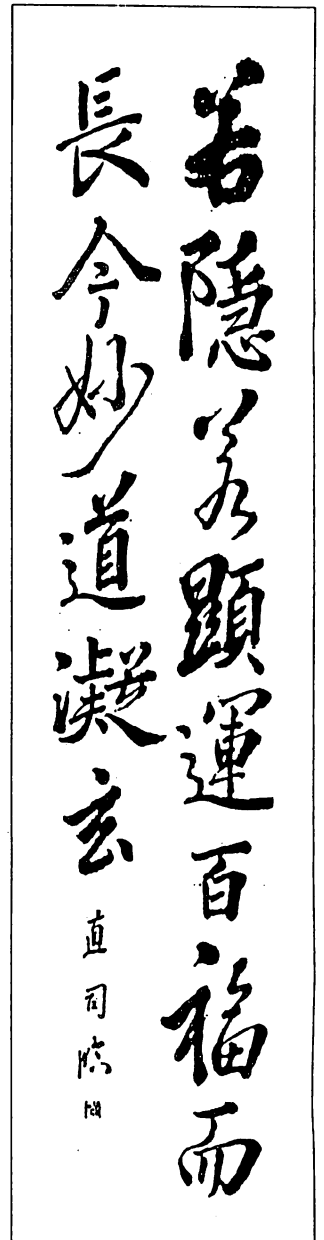 若隱若顯運百福而
長今妙道凝玄
直司臨